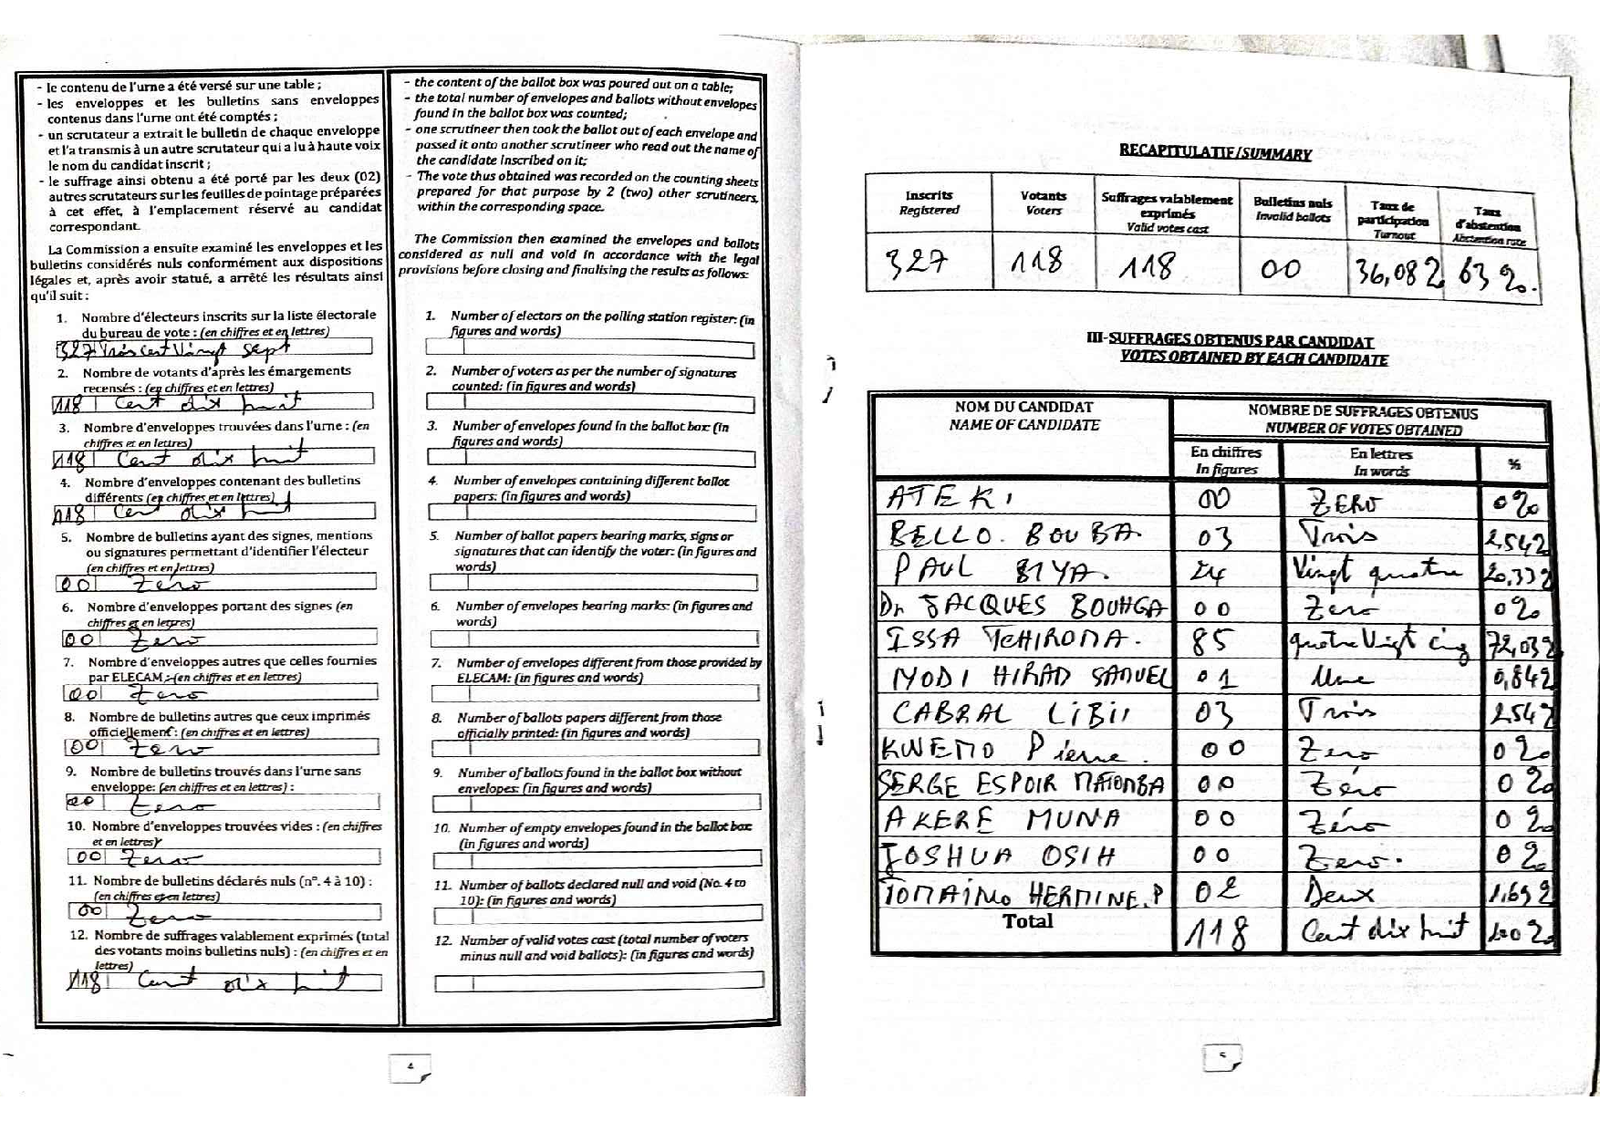 - le contenu de l'urne a été versé sur une table ;
- les enveloppes et les bulletins sans enveloppes
contenus dans l'urne ont été comptés ;
- un scrutateur a extrait le bulletin de chaque enveloppe
et l'a transmis à un autre scrutateur qui a lu à haute voix
le nom du candidat inscrit ;
- le suffrage ainsi obtenu a été porté par les deux (02)
autres scrutateurs sur les feuilles de pointage préparées
à cet effet, à l'emplacement réservé au candidat
correspondant.
La Commission a ensuite examiné les enveloppes et les
bulletins considérés nuls conformément aux dispositions
légales et, après avoir statué, a arrêté les résultats ainsi
qu'il suit :
1. Nombre d'électeurs inscrits sur la liste électorale
du bureau de vote : (en chiffres et en lettres)
327 Trois cent Vingt sept
2. Nombre de votants d'après les émargements
recensés : (en chiffres et en lettres)
118 Cent dix huit
3. Nombre d'enveloppes trouvées dans l'urne : (en
chiffres et en lettres)
118 Cent dix huit
4. Nombre d'enveloppes contenant des bulletins
différents (en chiffres et en lettres)
118 Cent dix huit
5. Nombre de bulletins ayant des signes, mentions
ou signatures permettant d'identifier l'électeur
(en chiffres et en lettres)
00 Zero
6. Nombre d'enveloppes portant des signes (en
chiffres et en lettres)
00 Zero
7. Nombre d'enveloppes autres que celles fournies
par ELECAM : (en chiffres et en lettres)
00 Zero
8. Nombre de bulletins autres que ceux imprimés
officiellement : (en chiffres et en lettres)
00 Zero
9. Nombre de bulletins trouvés dans l'urne sans
enveloppe: (en chiffres et en lettres) :
00 Zero
10. Nombre d'enveloppes trouvées vides : (en chiffres
et en lettres)
00 Zero
11. Nombre de bulletins déclarés nuls (n°. 4 à 10) :
(en chiffres et en lettres)
00 Zero
12. Nombre de suffrages valablement exprimés (total
des votants moins bulletins nuls) : (en chiffres et en
lettres)
118 Cent dix huit
- the content of the ballot box was poured out on a table;
- the total number of envelopes and ballots without envelopes
found in the ballot box was counted;
- one scrutineer then took the ballot out of each envelope and
passed it onto another scrutineer who read out the name of
the candidate inscribed on it;
- The vote thus obtained was recorded on the counting sheets
prepared for that purpose by 2 (two) other scrutineers,
within the corresponding space.
The Commission then examined the envelopes and ballots
considered as null and void in accordance with the legal
provisions before closing and finalising the results as follows:
1. Number of electors on the polling station register: (in
figures and words)
2. Number of voters as per the number of signatures
counted: (in figures and words)
3. Number of envelopes found in the ballot box: (in
figures and words)
4. Number of envelopes containing different ballot
papers: (in figures and words)
5. Number of ballot papers bearing marks, signs or
signatures that can identify the voter: (in figures and
words)
6. Number of envelopes bearing marks: (in figures and
words)
7. Number of envelopes different from those provided by
ELECAM: (in figures and words)
8. Number of ballots papers different from those
officially printed: (in figures and words)
9. Number of ballots found in the ballot box without
envelopes: (in figures and words)
10. Number of empty envelopes found in the ballot box:
(in figures and words)
11. Number of ballots declared null and void (No. 4 to
10): (in figures and words)
12. Number of valid votes cast (total number of voters
minus null and void ballots): (in figures and words)
4
RECAPITULATIF/SUMMARY
Inscrits Registered Votants Voters Suffrages valablement exprimés Valid votes cast Bulletins nuls Invalid ballots Taux de participation Turnout Taux d'abstention Abstention rate
327 118 118 00 36,08% 63%.
III-SUFFRAGES OBTENUS PAR CANDIDAT
VOTES OBTAINED BY EACH CANDIDATE
NOM DU CANDIDAT NOMBRE DE SUFFRAGES OBTENUS
NAME OF CANDIDATE NUMBER OF VOTES OBTAINED
En chiffres En lettres %
In figures In words
ATEKI 00 ZERO 0%
BELLO. BOUBA. 03 Trois 2,54%
PAUL BIYA. 24 Vingt quatre 20,33%
Dr JACQUES BOUHGA 00 Zero 0%
ISSA TCHIROMA. 85 quatre Vingt cinq 72,03%
IYODI HIRAD SAMUEL 01 Une 0,84%
CABRAL LiBii 03 Trois 2,54%
KWEMO Pierre. 00 Zero 0%
SERGE ESPOIR MATOMBA 00 Zéro 0%
AKERE MUNA 00 Zéro 0%
JOSHUA OSIH 00 Zero. 0%
TOMAINO HERMINE.P 02 Deux 1,69%
Total 118 Cent dix huit 100%
5